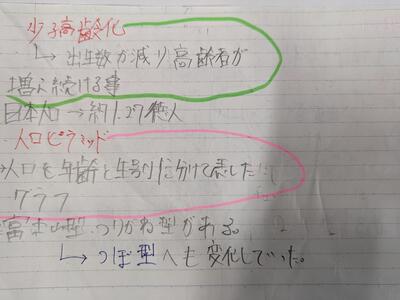 少子高齢化
↳ 出生数が減り高齢者が
増え続ける事
日本人口→約1.27億人
人口ピラミッド
→人口を年齢と性別に分けて表した
グラフ
富士山型、つりがね型がある。
↳ つぼ型へも変化していった。